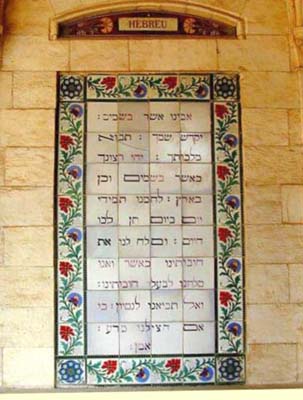 HEBREU
אבינו אשר בשמים:
יקדש שמך : תבוא
מלכותך : יהי רצונך
כאשר בשמים וכן
בארץ : לחמנו תמידי
יום ביום תן לנו
היום : וסלח לנו את
חובותינו כאשר ואנו
סלחנו לבעל חובותינו:
ואל תביאנו לנסיון: כי
אם הצילנו מרע:
אמן: